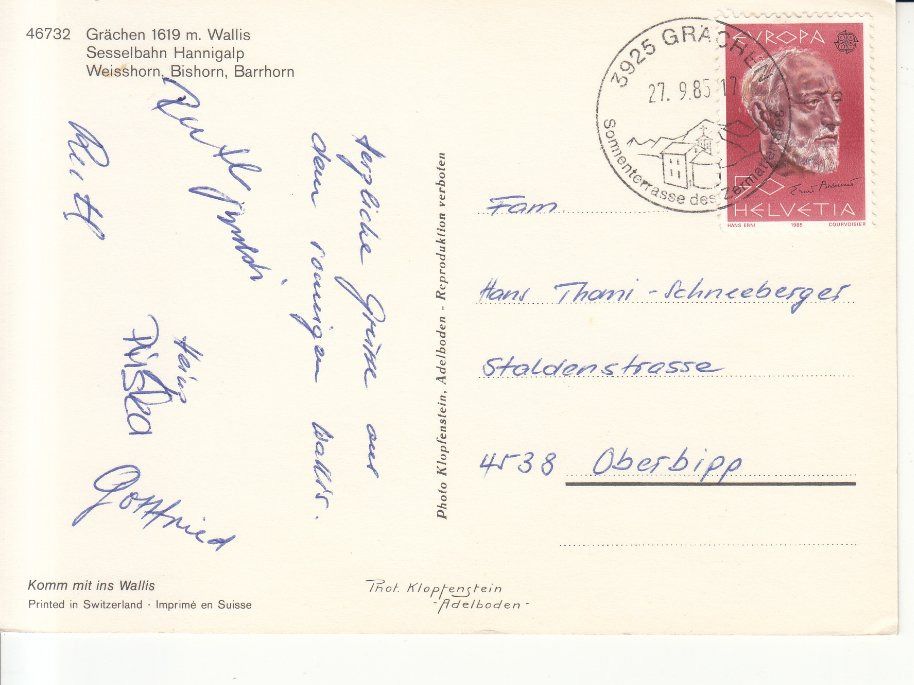 46732 Grächen 1619 m. Wallis
Sesselbahn Hannigalp
Weisshorn, Bishorn, Barrhorn
Herzliche Grüsse aus
dem sonnigen Wallis.
Ruth
Heinz
Gottfried
Komm mit ins Wallis
Printed in Switzerland · Imprimé en Suisse
Photo Klopfenstein, Adelboden - Reproduktion verboten
Phot. Klopfenstein
-Adelboden-
3925 GRÄCHEN
27. 9.85-17
Sonnenterrasse des Zermattertales
EVROPA
50
HELVETIA
HANS ERNI 1985 COURVOISIER
Fam
Hans Thomi-Schneeberger
Staldenstrasse
4538 Oberbipp